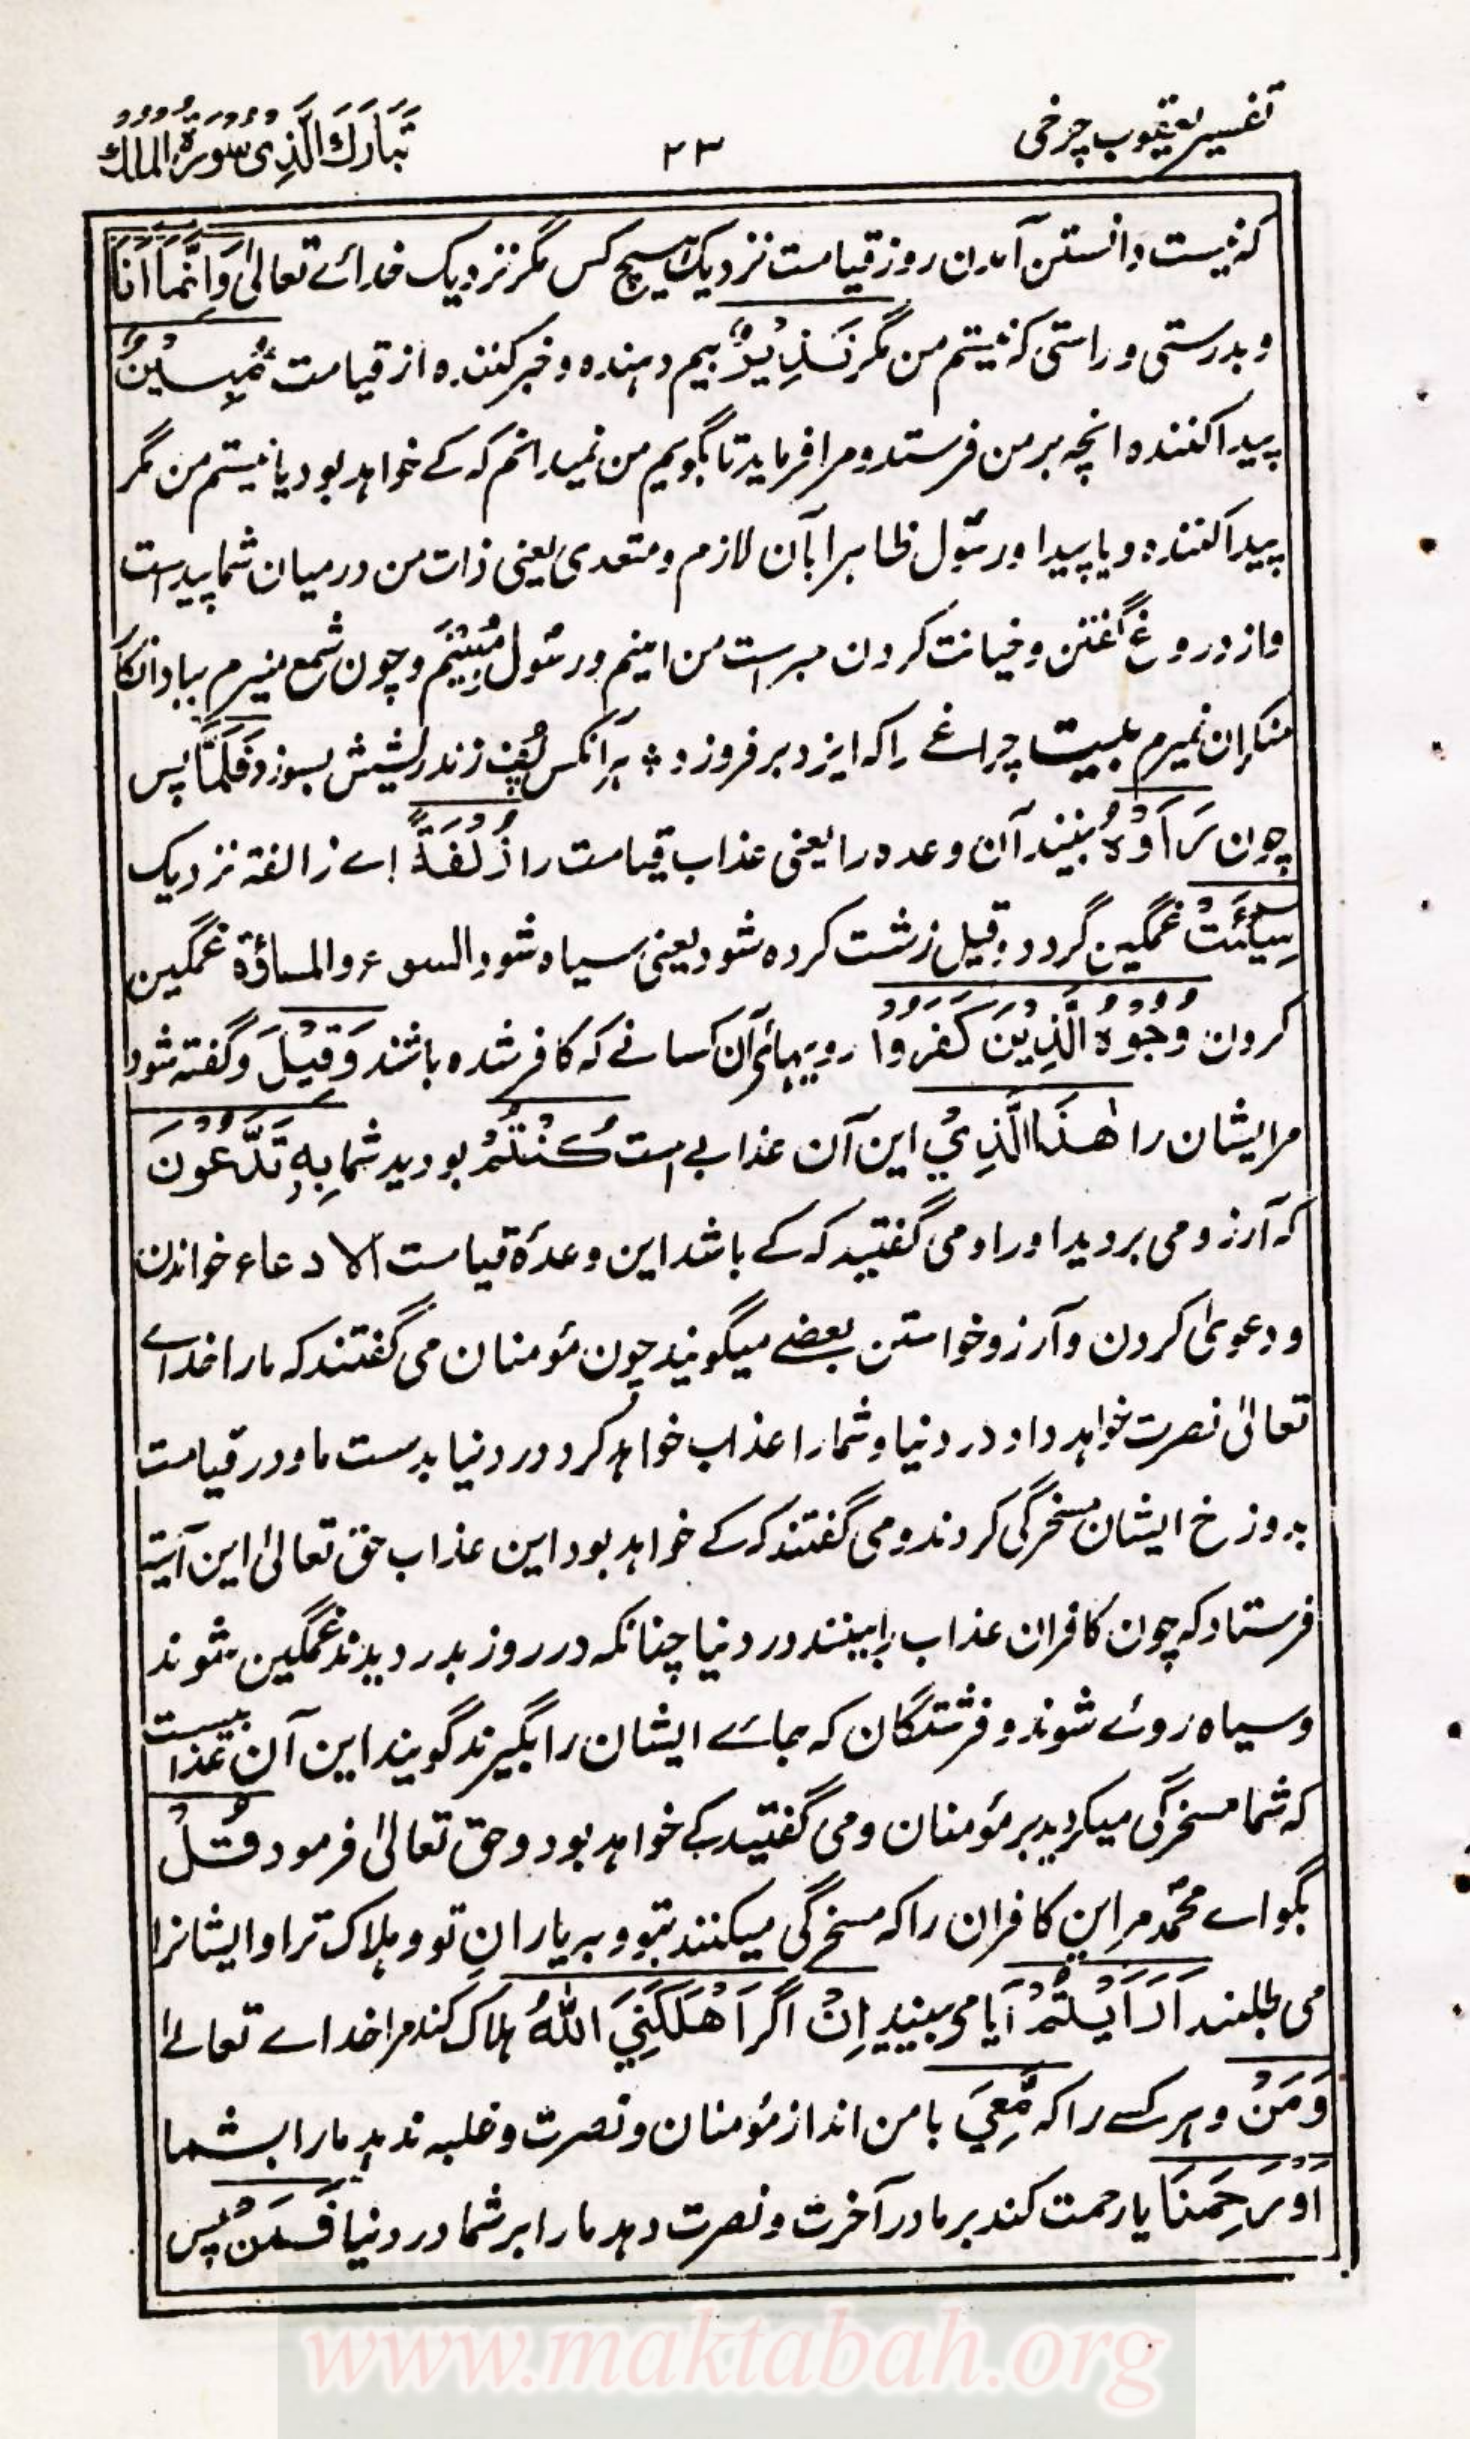 تفسیر یعقوب چرخی
۲۳
تَبَارَكَ الَّذِیْ سُوْرَةُ الْمُلْك
که نیست دانستن آمدن روز قیامت نزدیک هیچ کس مگر نزدیک خدائے تعالیٰ وَاِنَّمَا اَنَا
و بدرستی و راستی که نیستم من مگر نَذِیْرٌ بیم دهنده و خبر کننده از قیامت مُّبِیْنٌ
پیدا کننده انچه بر من فرستد و مرا فرماید تا بگویم من نمیدانم که کے خواهد بود یا نیستم من مگر
پیدا کننده و یا پیدا و رسُول ظاهر ابان لازم و متعدی یعنی ذات من درمیان شما پیداست
و از دروغ گفتن و خیانت کردن مبراست من امینم و رسُول مُبِیْنَم و چون شمع منیرم بباد انکار
منکران نمیرم بلیت چراغے را که ایزد بر فروزد ؞ هر آنکس پُف زند ریشش بسوزد فَلَمَّا پس
چون رَاَوْهُ ببینند آن وعده را یعنی عذاب قیامت را زُلْفَةً اے زالفة نزدیک
سِیْٓـَٔتْ غمگین گردد و قیل زشت کرده شود یعنی سیاه شود السوء والمساؤة غمگین
کردن وُجُوْهُ الَّذِیْنَ كَفَرُوْا رویهائے آن کسانے که کافر شده باشند وَقِیْلَ و گفته شود
مر ایشان را هٰذَا الَّذِیْ این آن عذابے است كُنْتُمْ بودید شما بِهٖ تَدَّعُوْنَ
که آرزو می بردید او را و می گفتید که کے باشد این وعدهٔ قیامت الادعاء خواندن
و دعویٰ کردن و آرزو خواستن بعضے میگویند چون مؤمنان می گفتند که ما را خداے
تعالیٰ نصرت خواهد داد در دنیا و شما را عذاب خواهد کرد در دنیا بدست ما و در قیامت
بدوزخ ایشان مسخرگی کردند و می گفتند که کے خواهد بود این عذاب حق تعالیٰ این آیت
فرستاد که چون کافران عذاب را ببینند در دنیا چنانکه در روز بدر دیدند غمگین شوند
و سیاه روئے شوند و فرشتگان که جاے ایشان را بگیرند گویند این آن عذابیست
که شما مسخرگی میکردید بر مؤمنان و می گفتید کے خواهد بود و حق تعالیٰ فرمود قُلْ
بگو اے محمّد مر این کافران را که مسخرگی میکنند بتو و بر یاران تو و هلاک ترا و ایشانرا
می طلبند اَرَاَیْتُمْ آیا می بینید اِنْ اگر اَهْلَكَنِیَ اللّٰهُ هلاک کند مرا خداے تعالےٰ
وَمَنْ و هر کسے را که مَّعِیَ با من اند از مؤمنان و نصرت و غلبه ندهد ما را بشما
اَوْ رَحِمَنَا یا رحمت کند بر ما در آخرت و نصرت دهد ما را بر شما در دنیا فَمَنْ پس
www.maktabah.org